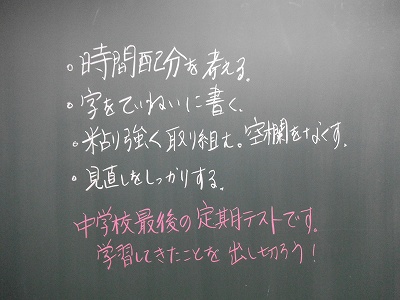 ・時間配分を考える。
・字をていねいに書く。
・粘り強く取り組む。空欄をなくす。
・見直しをしっかりする。
中学校最後の定期テストです。
学習してきたことを出し切ろう！